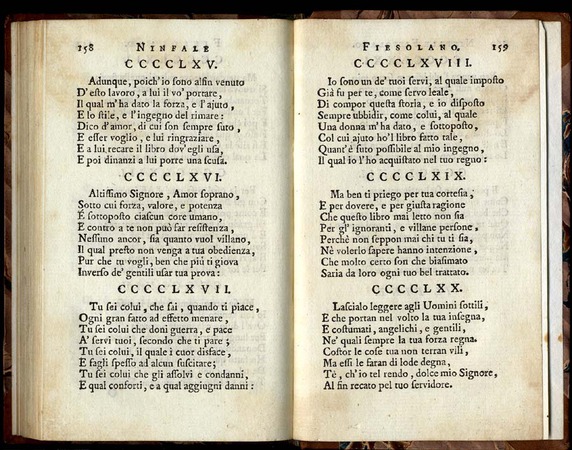 158 NINFALE
CCCCLXV.
Adunque, poich' io sono alfin venuto
D' esto lavoro, a lui il vo' portare,
Il qual m' ha dato la forza, e l' ajuto,
E lo stile, e l' ingegno del rimare:
Dico d' amor, di cui son sempre suto,
E esser voglio, e lui ringraziare,
E a lui recare il libro dov' egli usa,
E poi dinanzi a lui porre una scusa.
CCCCLXVI.
Altissimo Signore, Amor soprano,
Sotto cui forza, valore, e potenza
É sottoposto ciascun core umano,
E contro a te non può far resistenza,
Nessuno ancor, sia quanto vuol villano,
Il qual presto non venga a tua obedienza,
Pur che tu vogli, ben che più ti giova
Inverso de' gentili usar tua prova:
CCCCLXVII.
Tu sei colui, che sai, quando ti piace,
Ogni gran fatto ad effetto menare,
Tu sei colui che doni guerra, e pace
A' servi tuoi, secondo che ti pare;
Tu sei colui, il quale i cuor disface,
E fagli spesso ad alcun suscitare;
Tu sei colui che gli assolvi e condanni,
E qual conforti, e a qual aggiugni danni:
FIESOLANO. 159
CCCCLXVIII.
Io sono un de' tuoi servi, al quale imposto
Già fu per te, come servo leale,
Di compor questa storia, e io disposto
Sempre ubbidir, come colui, al quale
Una donna m' ha dato, e sottoposto,
Col cui ajuto ho'l libro fatto tale,
Quant' è suto possibile al mio ingegno,
Il qual io l' ho acquistato nel tuo regno:
CCCCLXIX.
Ma ben ti priego per tua cortesia,
E per dovere, e per giusta ragione
Che questo libro mai letto non sia
Per gl' ignoranti, e villane persone,
Perchè non seppon mai chi tu ti sia,
Nè volerlo sapere hanno intenzione,
Che molto certo son che biasimato
Saria da loro ogni tuo bel trattato.
CCCCLXX.
Lascialo leggere agli Uomini sottili,
E che portan nel volto la tua insegna,
E costumati, angelichi, e gentili,
Ne' quali sempre la tua forza regna.
Costor le cose tua non terran vili,
Ma essi le faran di lode degna,
Tè, ch' io tel rendo, dolce mio Signore,
Al fin recato pel tuo servidore.